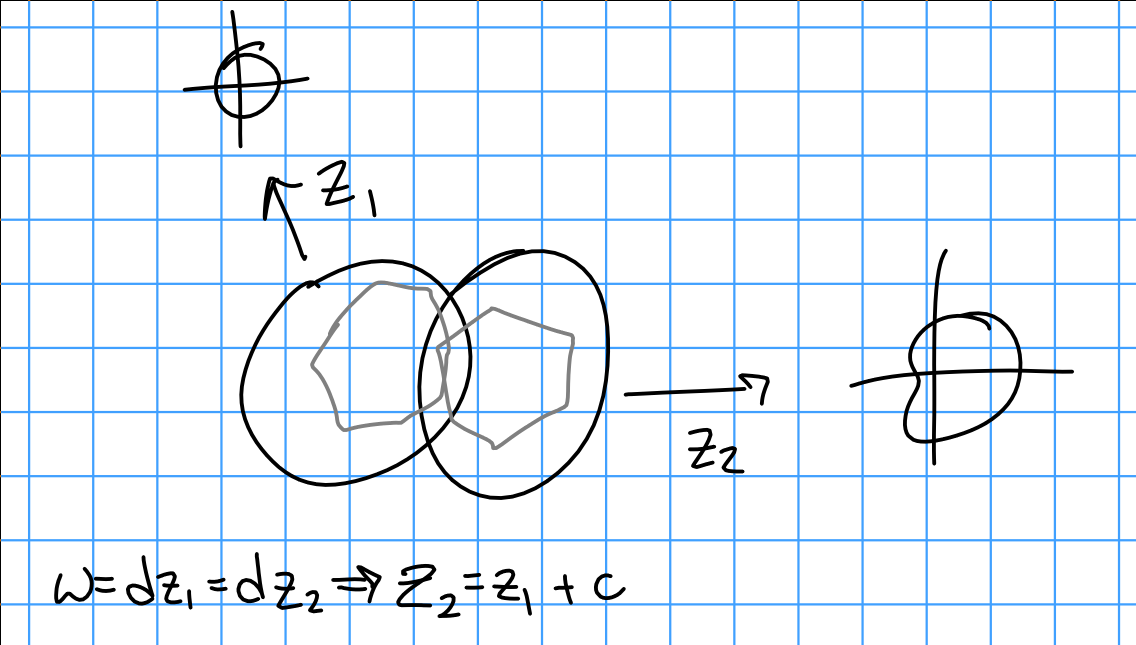 z₁
z₂
ω = dz₁ = dz₂ ⇒ z₂ = z₁ + c